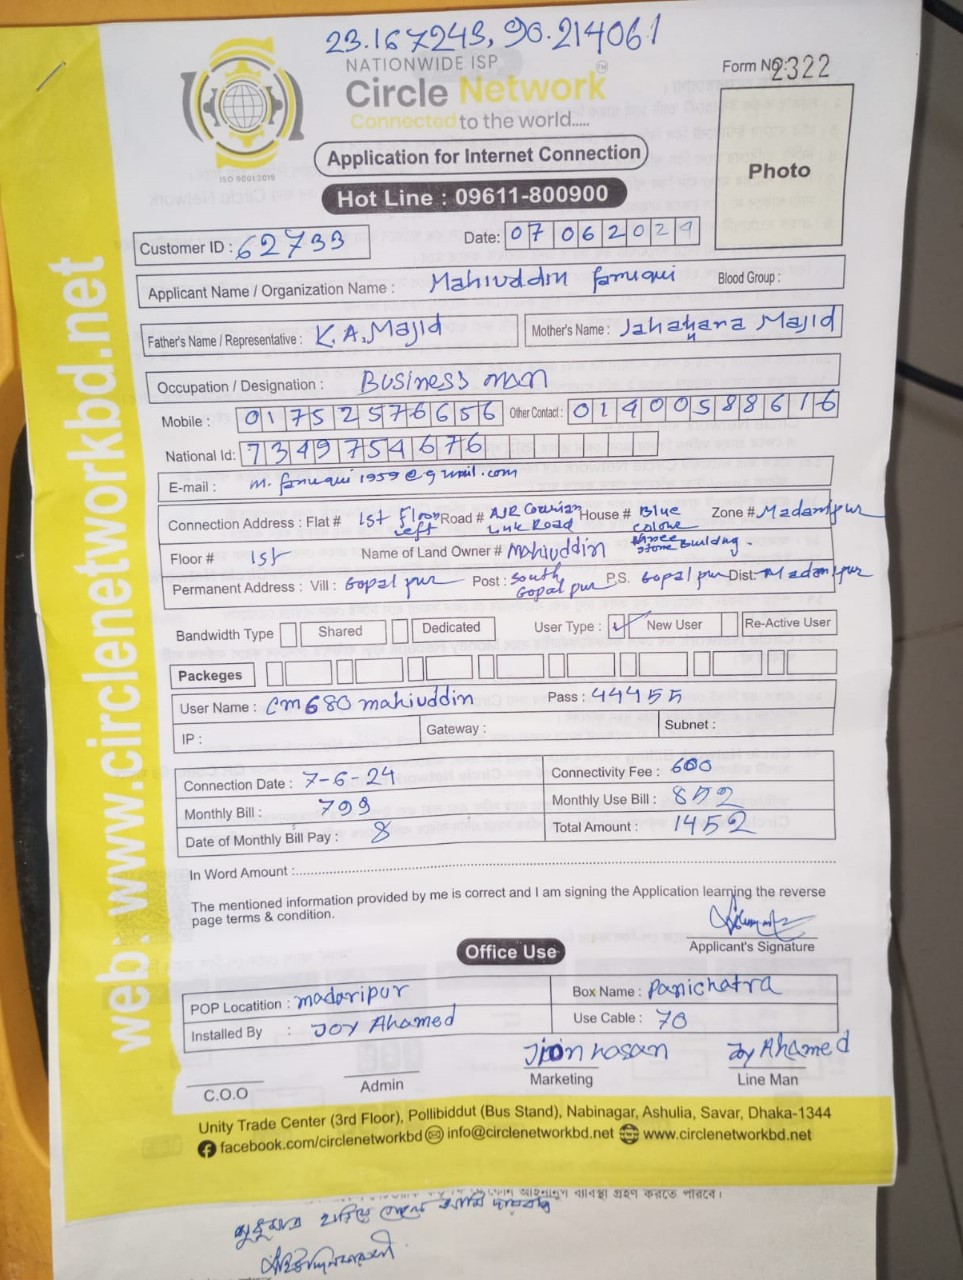 23.167243, 90.214061
NATIONWIDE ISP
Circle Network
Connected to the world.....
ISO 9001:2015
Form No: 2322
Photo
Application for Internet Connection
Hot Line : 09611-800900
Customer ID : 62733
Date: 07062024
Applicant Name / Organization Name : Mahiuddin faruqui
Blood Group :
Father's Name / Representative : K.A. Majid
Mother's Name : Jahanara Majid
Occupation / Designation : Business man
Mobile : 01752576656
Other Contact : 01400588616
National Id: 7349754676
E-mail : m.faruqui1959@gmail.com
Connection Address : Flat # 1st Floor Left Road # AJR Courier Link Road House # Blue Colone three Stone Building. Zone # Madaripur
Floor # 1st Name of Land Owner # Mahiuddin
Permanent Address : Vill : Gopalpur Post : South Gopalpur P.S. Gopalpur Dist: Madaripur
Bandwidth Type Shared Dedicated User Type : ✓ New User Re-Active User
Packeges
User Name : cm680mahiuddin Pass : 44455
IP : Gateway : Subnet :
Connection Date : 7-6-24 Connectivity Fee : 600
Monthly Bill : 799 Monthly Use Bill : 852
Date of Monthly Bill Pay : 8 Total Amount : 1452
In Word Amount :
The mentioned information provided by me is correct and I am signing the Application learning the reverse
page terms & condition.
Applicant's Signature
Office Use
POP Locatition : madaripur Box Name : Panichatra
Installed By : Joy Ahamed Use Cable : 70
Jion hasan Joy Ahamed
C.O.O Admin Marketing Line Man
Unity Trade Center (3rd Floor), Pollibiddut (Bus Stand), Nabinagar, Ashulia, Savar, Dhaka-1344
facebook.com/circlenetworkbd info@circlenetworkbd.net www.circlenetworkbd.net
web: www.circlenetworkbd.net
ব্যবস্থা গ্রহণ করতে পারবে।